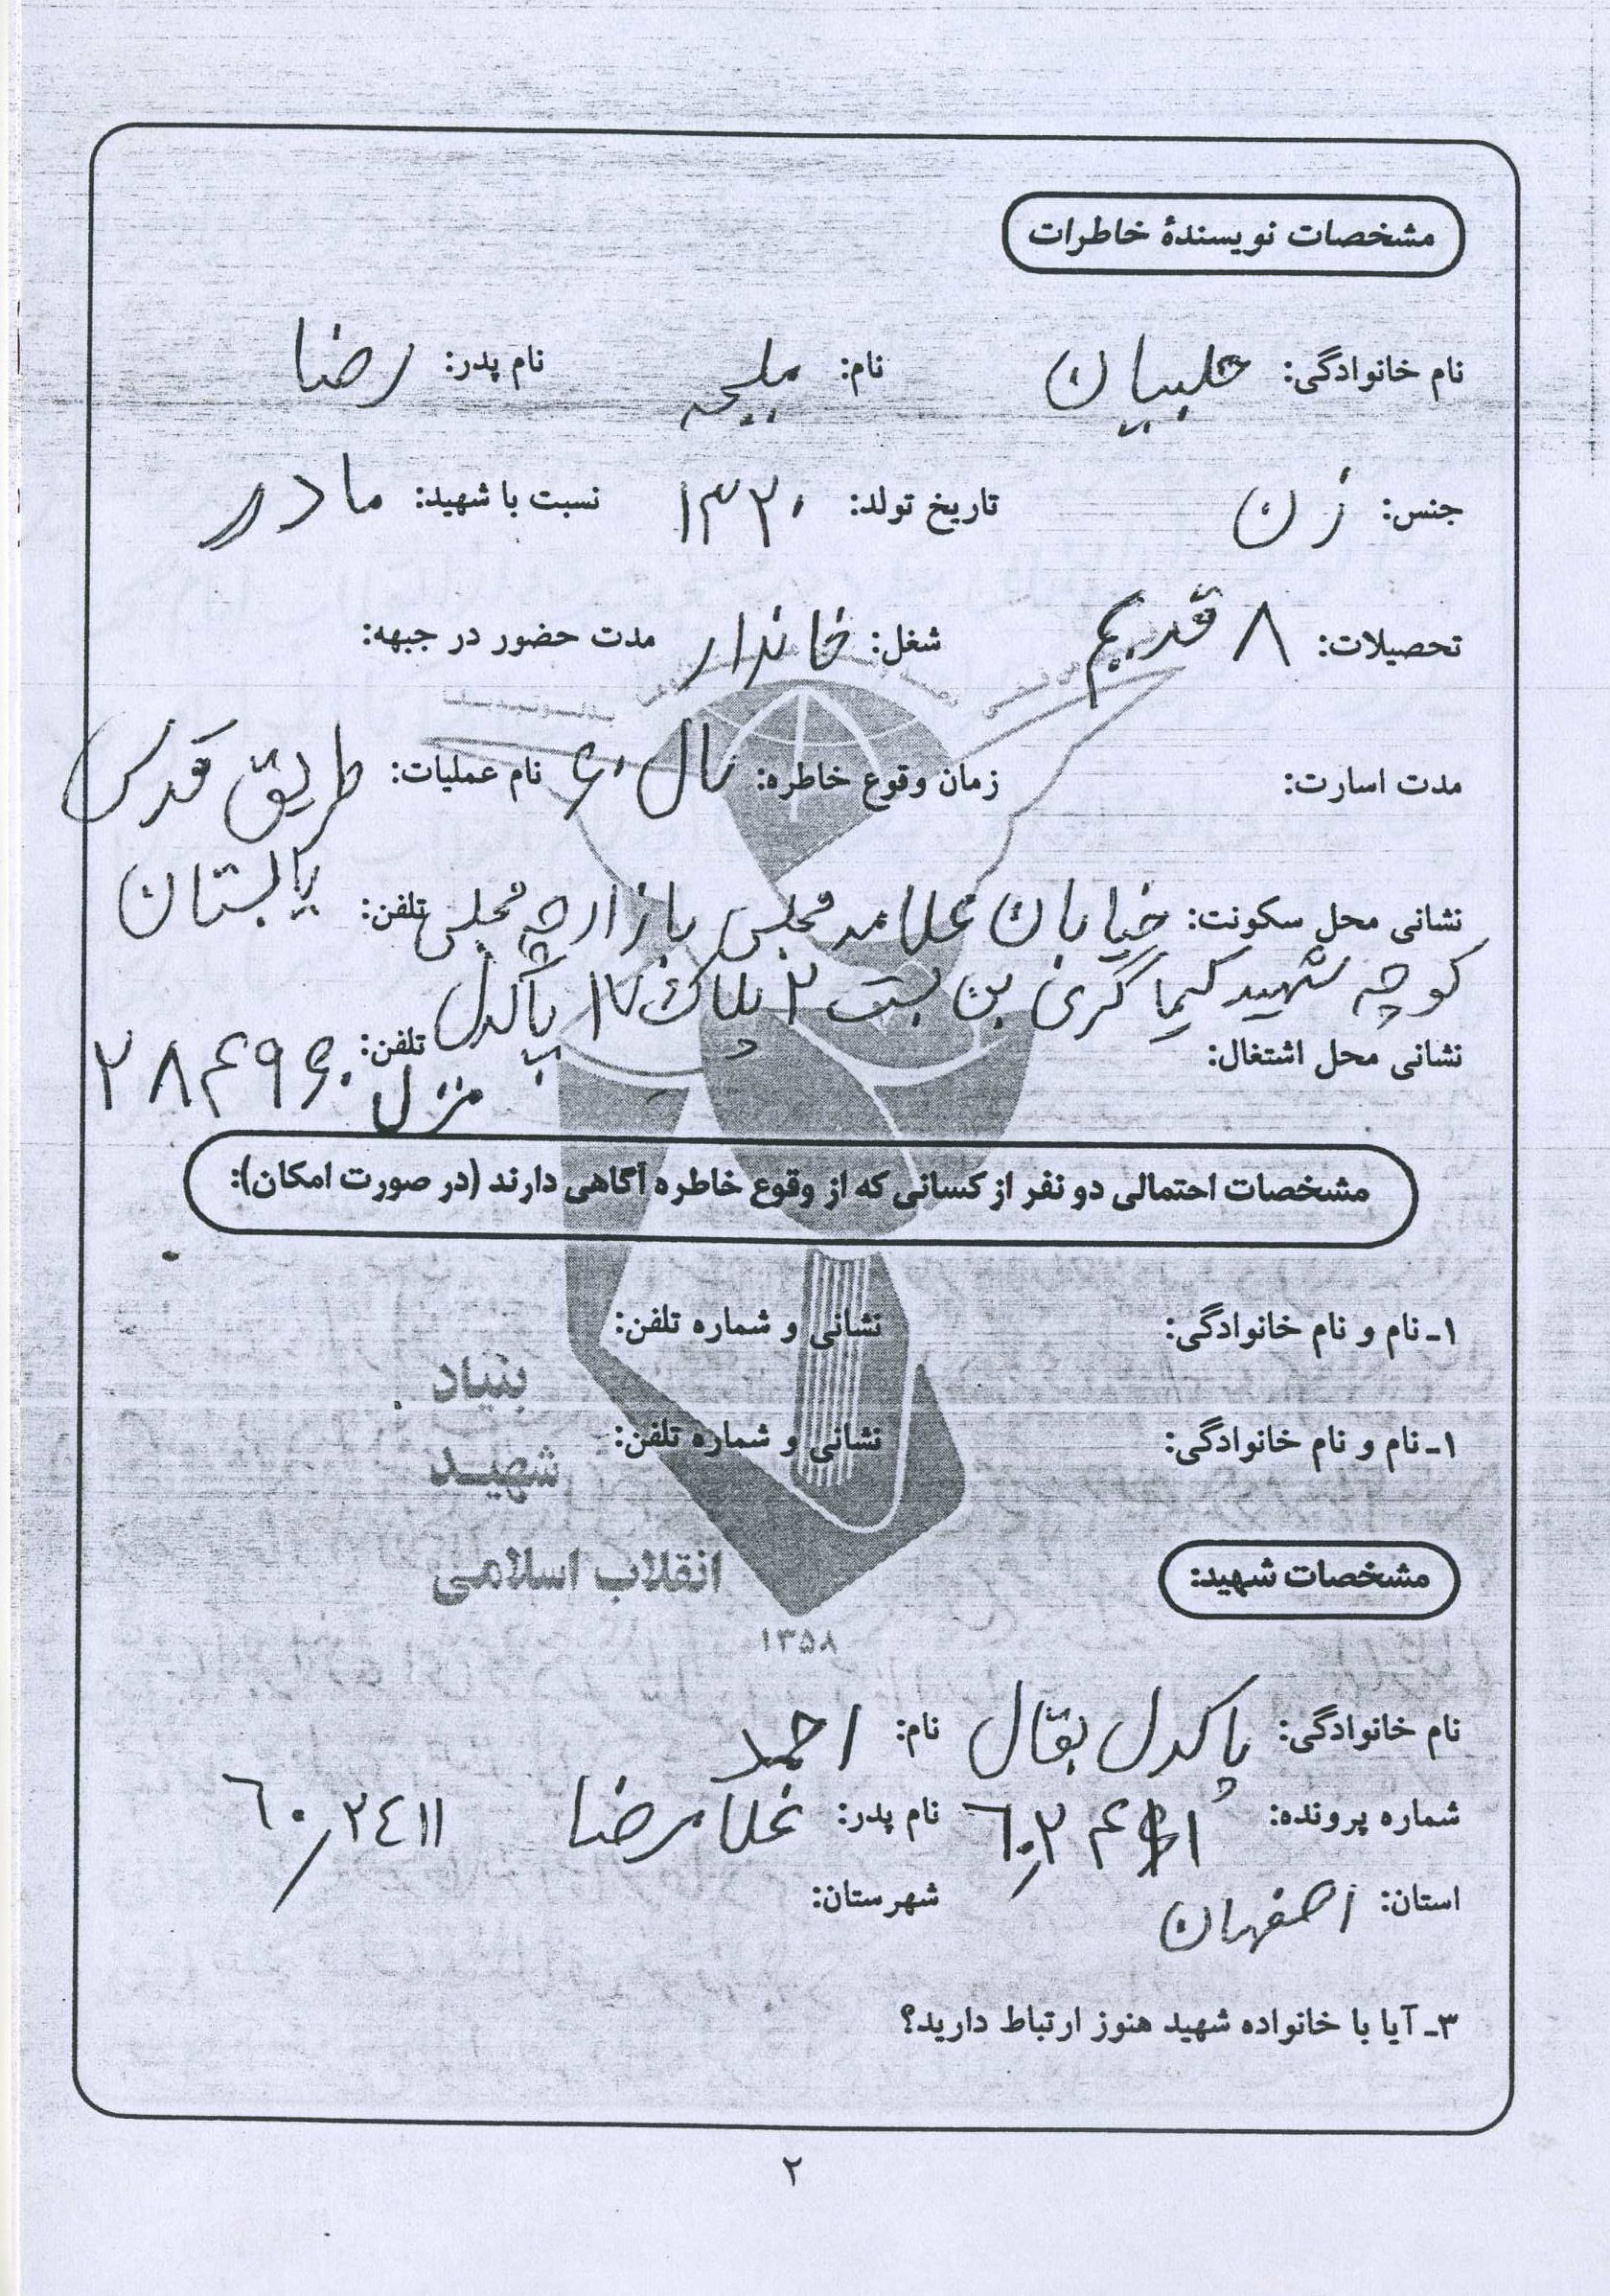 مشخصات نویسندۀ خاطرات
نام خانوادگی: حلبیان نام: ملیحه نام پدر: رضا
جنس: زن تاریخ تولد: ۱۳۲۰ نسبت با شهید: مادر
تحصیلات: ۸ قدیم شغل: خاندار مدت حضور در جبهه:
مدت اسارت: زمان وقوع خاطره: سال ۶۰ نام عملیات: طریق قدس
نشانی محل سکونت: خیابان علامه مجلسی بازارچه مجلسی تلفن:
کوچه شهید کیماگری بن بست ۲ پلاک ۱۷ پاکدل
نشانی محل اشتغال: تلفن: منزل ۲۸۴۹۶۰
مشخصات احتمالی دو نفر از کسانی که از وقوع خاطره آگاهی دارند (در صورت امکان):
۱ـ نام و نام خانوادگی: نشانی و شماره تلفن:
۱ـ نام و نام خانوادگی: نشانی و شماره تلفن:
بنیاد
شهیـد
انقلاب اسلامی
۱۳۵۸
مشخصات شهید:
نام خانوادگی: پاکدل بقال نام: احمد
شماره پرونده: نام پدر: غلامرضا ٦٠/٢٤١١
استان: اصفهان شهرستان:
۳ـ آیا با خانواده شهید هنوز ارتباط دارید؟
۲